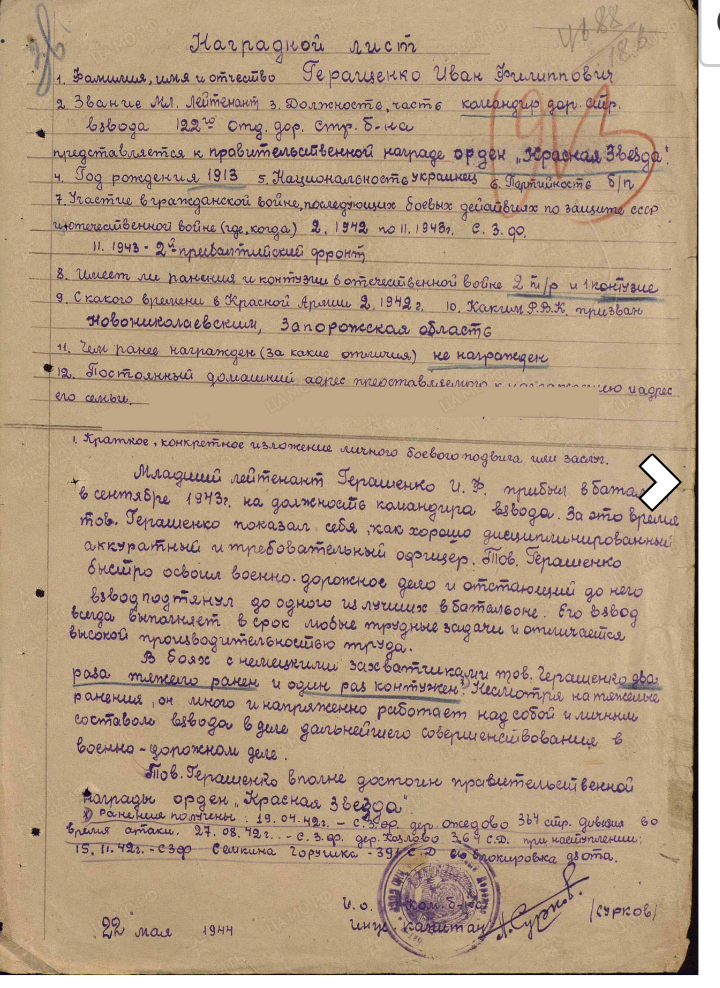 Наградной лист
1. Фамилия, имя и отчество Геращенко Иван Филиппович
2. Звание Мл. лейтенант 3. Должность, часть командир дор. стр.
взвода 122го отд. дор. стр. б-на
представляется к правительственной награде орден „Красная Звезда".
4. Год рождения 1913 5. Национальность украинец 6. Партийность б/п
7. Участие в гражданской войне, последующих боевых действиях по защите СССР
и отечественной войне (где, когда) 2.1942 по 11.1943г. С.З.Ф.
11.1943 - 2й прибалтийский фронт
8. Имеет ли ранения и контузии в отечественной войне 2 т/р и 1 контузие
9. С какого времени в Красной Армии 2.1942 г. 10. Каким Р.В.К. призван
Новониколаевским, Запорожская область
11. Чем ранее награжден (за какие отличия) не награжден
12. Постоянный домашний адрес представляемого к и адрес
его семьи.
1. Краткое, конкретное изложение личного боевого подвига или заслуг.
Младший лейтенант Геращенко И. Ф. прибыл в
в сентябре 1943г. на должность командира взвода. За это время
тов. Геращенко показал себя, как хорошо дисциплинированный
аккуратный и требовательный офицер. Тов. Геращенко
быстро освоил военно-дорожное дело и отстающий до него
взвод подтянул до одного из лучших в батальоне. Его взвод
всегда выполняет в срок любые трудные задачи и отличается
высокой производительностью труда.
В боях с немецкими захватчиками тов. Геращенко два
раза тяжело ранен и один раз контужен. Несмотря на тяжелые
ранения, он много и напряженно работает над собой и личным
составом взвода в деле дальнейшего совершенствование в
военно-дорожном деле.
Тов. Геращенко вполне достоин правительственной
награды орден „Красная Звезда".
Ранения получены: 19.04.42г. - С.З.Фр. дер. ожедово 364 стр. дивизия во
время атаки. 27.08.42г. - С.З.Фр. дер. Козлово 364 С.Д. при наступлении;
15.11.42г. - СЗФ Семкина Горушка - 391 С.Д блокировка дзота.
И.о. Ком. б-на
Инж. Капитан (Сурков)
22 мая 1944